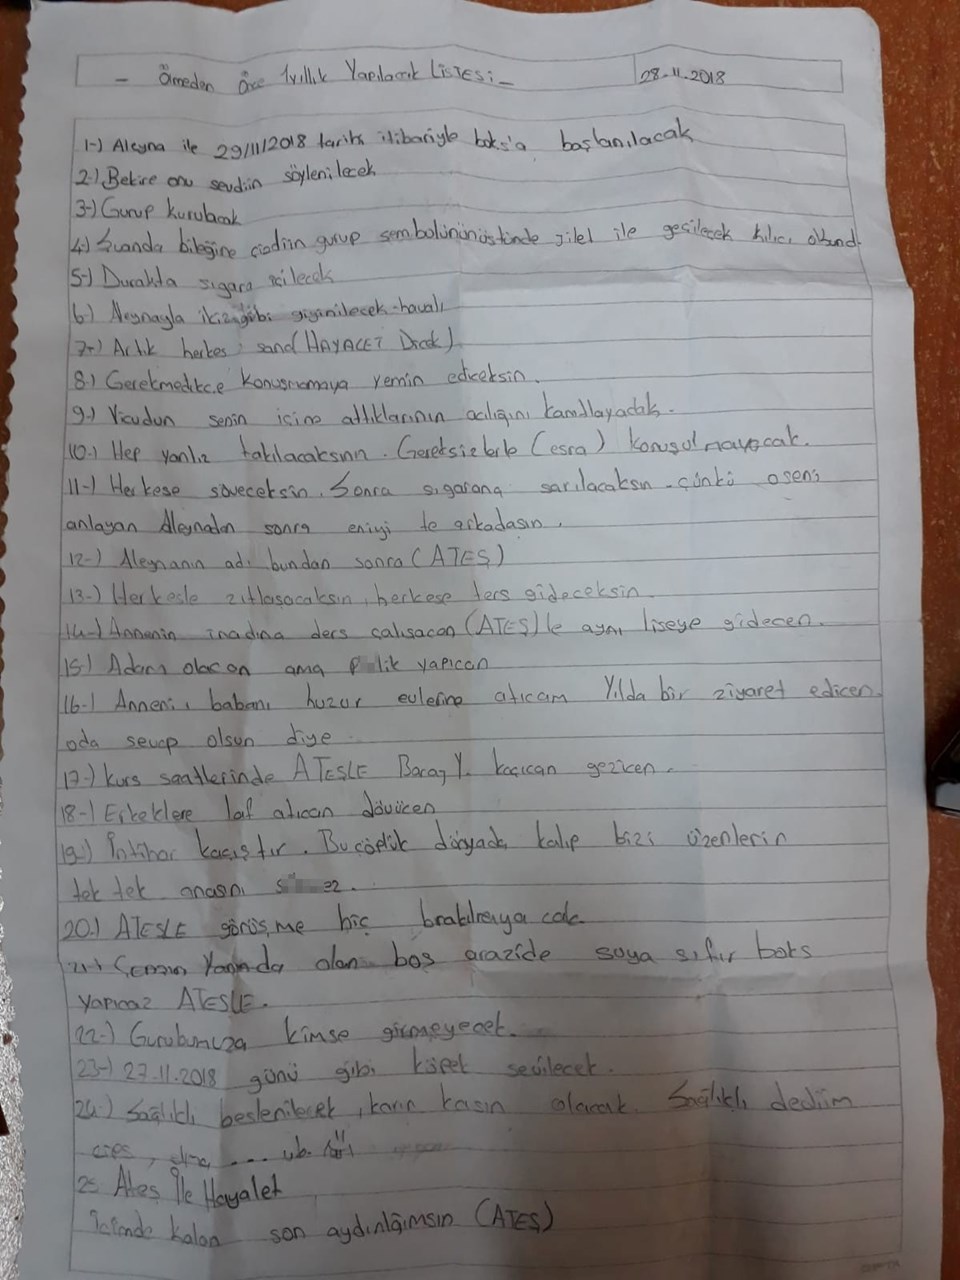 - Ölmeden Önce 1 yıllık Yapılacak LİSTESİ - 28.11.2018
1-) Aleyna ile 29/11/2018 tarihi itibariyle boks'a başlanılacak
2-) Bekire onu sevdiin söylenilecek
3-) Gurup kurulacak
4-) Şuanda bileğine çizdiin gurup sembolününüstünde jilet ile geçilecek kılıcı
5-) Durakta sigara içilecek
6-) Aleynayla ikiz gibi giyinilecek-havalı
7-) Artık herkes sana (HAYALET Dicek)
8-) Gerekmedikçe konuşmamaya yemin ediceksin.
9-) Vücudun senin içine attıklarının acılığını kanıtlayacak.
10-) Hep yanlız takılacaksın. Gereksizlerle (esra) konuşulmayacak.
11-) Herkese söveceksin. Sonra sigarana sarılacaksın - çünkü o seni
anlayan Aleynadan sonra eniyi te arkadaşın.
12-) Aleynanın adı bundan sonra (ATEŞ)
13-) Herkesle zıtlaşacaksın, herkese ters gideceksin.
14-) Annenin inadına ders çalışacan (ATEŞ)le aynı liseye gidecen.
15-) Adam olacan ama p lik yapıcan
16-) Anneni, babanı huzur evlerine atıcam Yılda bir ziyaret edicen
oda sevap olsun diye
17-) kurs saatlerinde ATEŞLE Y. kaçıcan gezicen.
18-) Erkeklere laf atıcan dövücen
19-) İntihar kaçıştır. Bu çöplük dünyada kalıp bizi üzenlerin
tek tek anasını s ez.
20-) ATEŞLE görüşme hiç bırakılmayacak
21-) Yanında olan boş arazide suya sıfır boks
yapıcaz ATEŞLE.
22-) Gurubumuza kimse girmeyecek.
23-) 27.11.2018 günü gibi köpek sevilecek.
24-) Sağlıklı beslenilecek, karın kasın olacak. Sağlıklı dediim
cips, ... vb.
25 Ateş İle Hayalet
İçimde kalan son aydınlığımsın (ATEŞ)